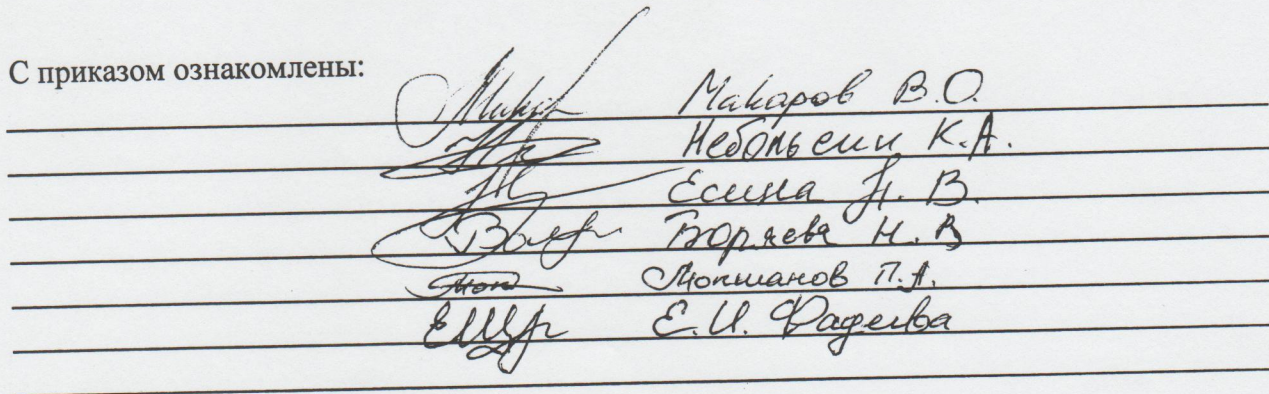 С приказом ознакомлены:
Макаров В.О.
Небольсин К.А.
Есина Н. В.
Боряева Н. В
Мокшанов П.А.
Е.И. Фадеева